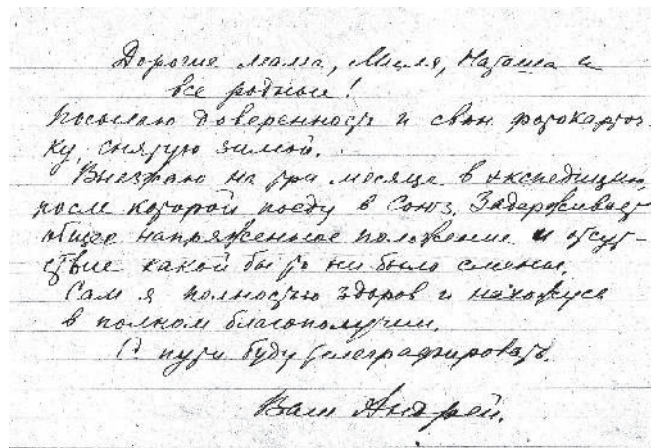 Дорогие мама, Миля, Наташа и
все родные!
Посылаю доверенность и свою фотокарточ-
ку, снятую зимой.
Выезжаю на три месяца в экспедицию,
после которой поеду в Союз. Задерживает
общее напряженное положение и отсут-
ствие какой бы то ни было смены.
Сам я полностью здоров и нахожусь
в полном благополучии.
С пути буду телеграфировать.
Ваш Андрей.